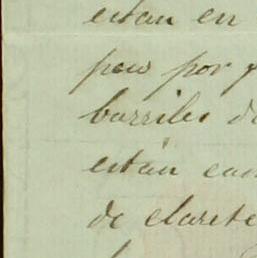 estan en
pero por
barriles d
están can
de clarete